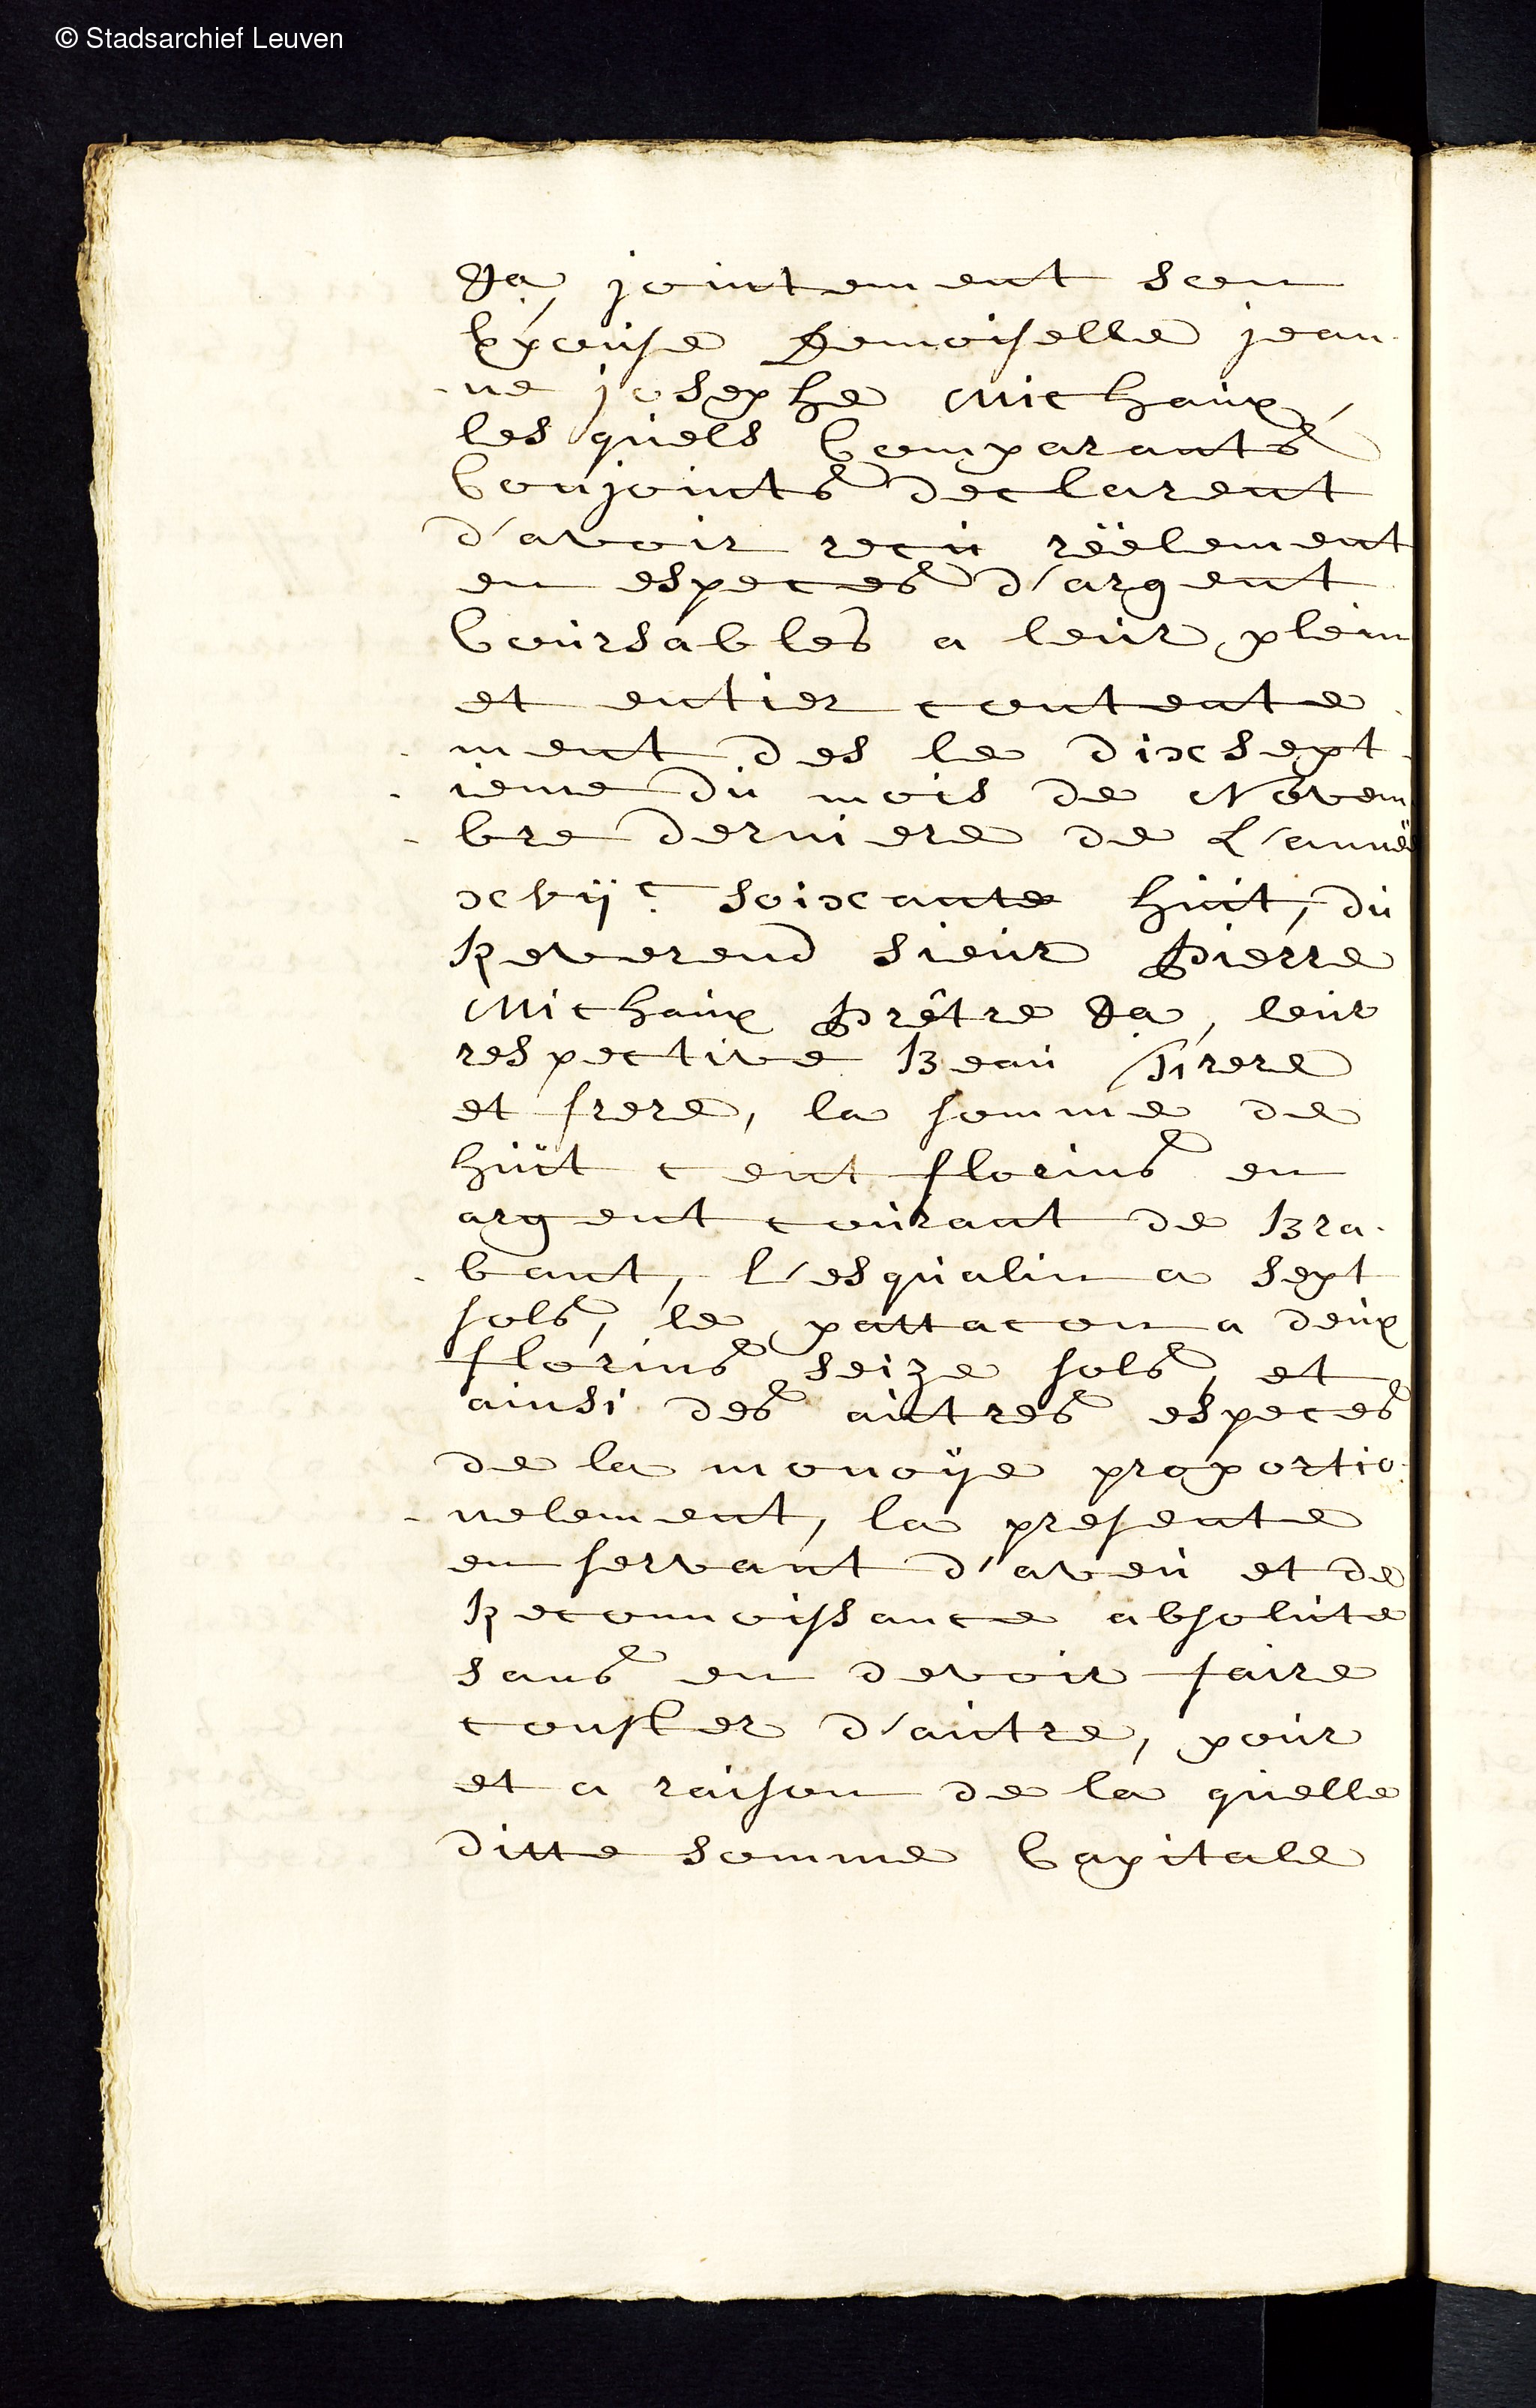 © Stadsarchief Leuven
Ja, jointement son
Epouse Demoiselle jean-
-ne josephe Michaux,
les quels Comparants
Conjoints declarent
d'avoir reçu rëelement
en especes d'argent
Coursables a leur plein
et entier contente
-ment des le dixsept
-ieme du mois de Novem
-bre derniere de L'anneë
xvijc soixante huit, du
Reverend sieur Pierre
Michaux Prêtre Ja, leur
respective Beau Frere
et frere, la somme de
huit cent florins en
argent courant de Bra-
-bant, l'esqualin a sept
sols, le pattacon a deux
florins seize sols, et
ainsi des autres especes
de la monoÿe proportio-
-nelement, la presente
en servant d'aveu et de
Reconnoissance absolute
sans en devoir faire
conster d'autre, pour
et a raison de la quelle
ditte somme Capitale